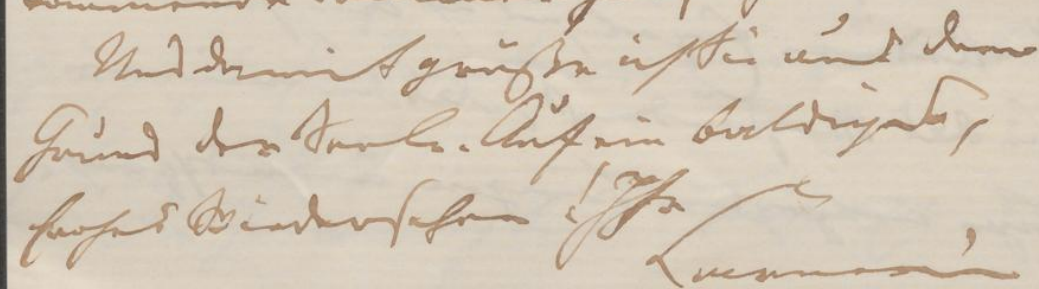 Und damit grüße ich Sie aus dem
Grund der Seele. Auf ein baldiges,
frohes Wiedersehen! Ihr